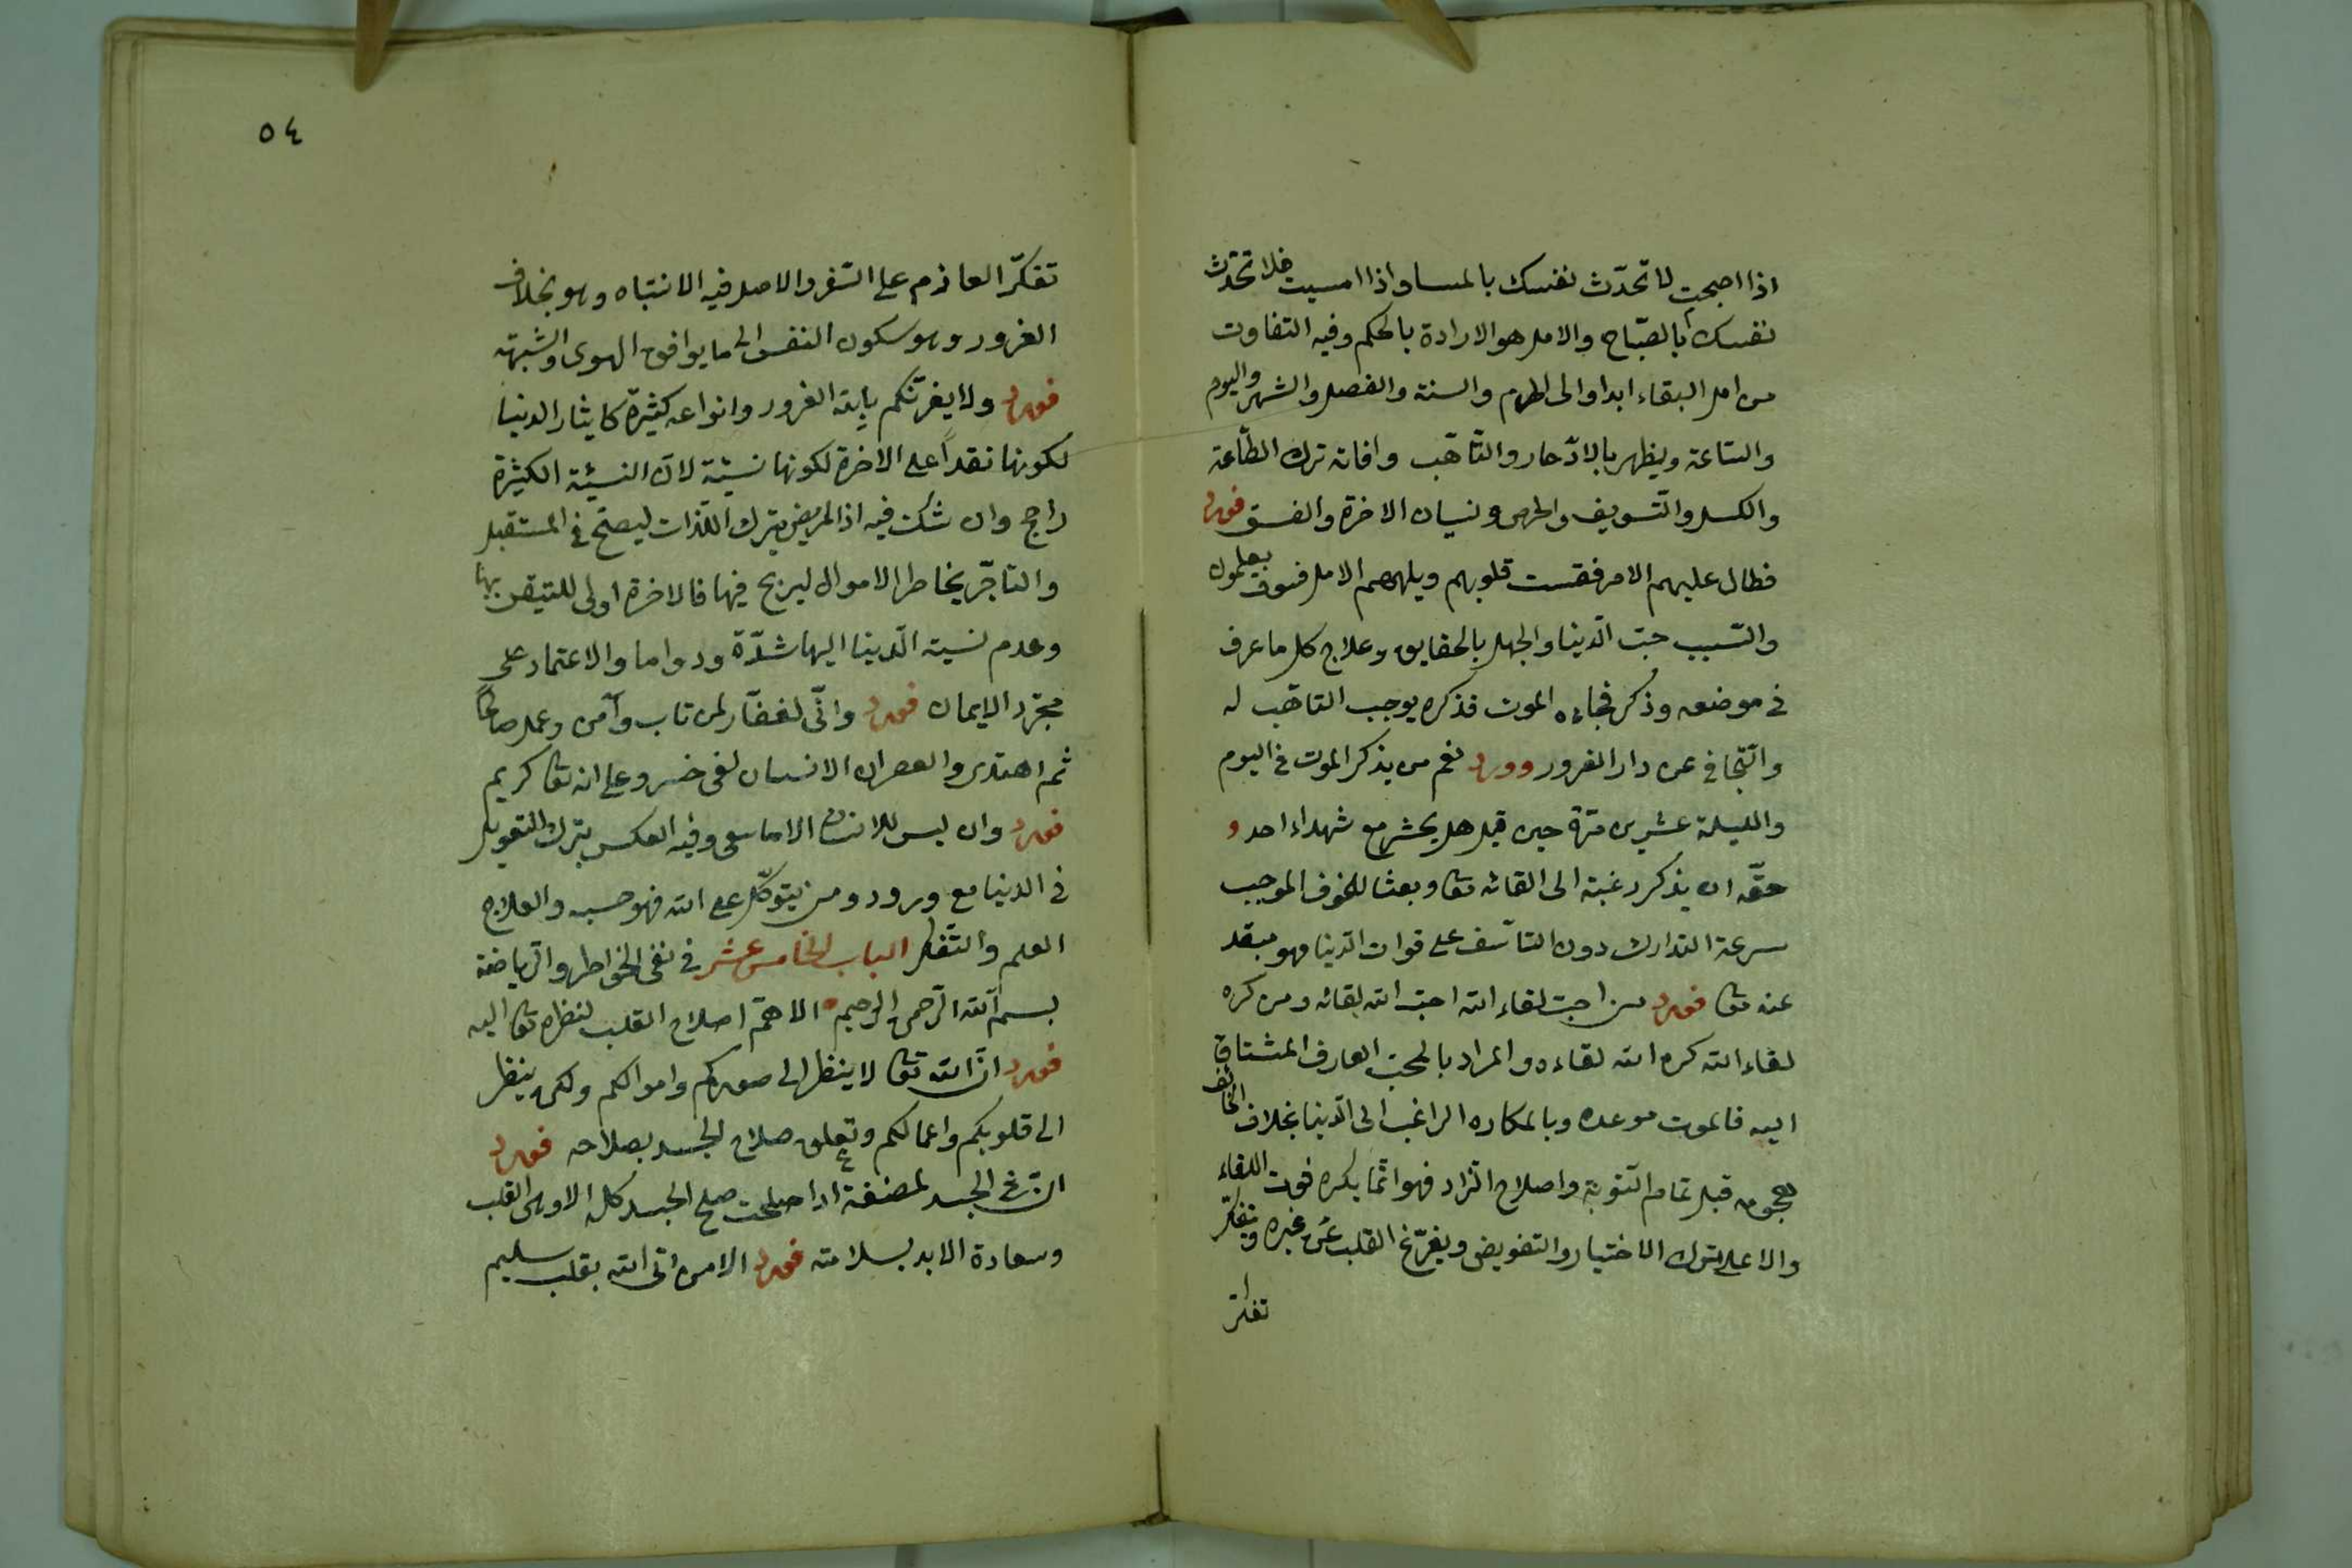 اذا اصبحت لا تحدّث نفسك بالمسا واذا امسيت فلا تحدّث
نفسك بالصّباح والامل هو الارادة بالحكم وفيه التفاوت
من امل البقاء ابدا والى الهرم والسنة والفصل والشهر واليوم
والسّاعة ويظهر بالادّخار والتّاهّب وافاته ترك الطّاعة
والكسل والتّسويف والحرص ونسيان الاخرة والفسق فورد
فطال عليهم الامر فقست قلوبهم ويلههم الامل فسوف يعلمون
والسّبب حبّ الّدينا والجهل بالحقايق وعلاج كل ما عرف
فى موضعه وذكر فجاءه الموت فذكره يوجب التاهّب له
والتّجافى عن دار الغرور وورد نعم من يذكر الموت فى اليوم
والليلة عشرين مرّة حين قيل هل يحشر مع شهداء احد و
حقّه ان يذكر رغبة الى القائه تعا وبعثا للخوف الموجب
سرعة التدارك دون التاسّف على فوات الدّينا فهو مبعد
عنه تعا فورد من احبّ لقاء الله احبّ الله لقائه ومن كره
لقاء الله كره الله لقاءه والمراد بالمحبّ العارف المشتاق
اليه فالموت موعده وبالمكاره الراغب الى الّدينا بخلاف الخائف
هجومه قبل تمام التّوبة واصلاح الزاد فهو انّما يكره فوت اللقاء
والاعلى بترك الاختيار والتفويض ويفرّغ القلب عن غيره ويتفكّر
تفكّر
٥٤
تفكّر العازم على السّفر والاصل فيه الانتباه وهو بخلاف
الغرور وهو سكون النفس الى ما يوافق الهوى والشبهة
فورد ولا يغرّنّكم بالله الغرور وانواعه كثيرة كايثار الدنيا
لكونها نقداً على الاخرة لكونها نسيّة لانّ النسيّة الكثيرة
راجح وان شكت فيه اذ المريض يترك اللّذات ليصحّ فى المستقبل
والتاجّر يخاطر الاموال ليربح فيها فالاخرة اولى للتيقن بها
وعدم نسبة الّدينا اليها شدّة ودواما والاعتماد على
مجرّد الايمان فورد وانّى لغفّار لمن تاب وآمن وعمل صالحًا
ثم اهتدى والعصر ان الانسان لفى خسر وعلى انه تعا كريم
فورد وان ليس للانسان الا ما سعى وفيه العكس بترك التعويل
فى الدنيا مع ورود ومن يتوكّل على الله فهو حسبه والعلاج
العلم والتّفكر الباب الخامس عشر فى نفى الخواطر والرّياضة
بسم الله الرّحمن الرّحيم الاهمّ اصلاح القلب لنظره تعا اليه
فورد انّ الله تعا لا ينظر الى صوركم واموالكم ولكن ينظر
الى قلوبكم واعمالكم وتعلق صلاح الجسد بصلاحه فورد
انّ فى الجسد لمضغة اذا صلحت صلح الجسد كله الا وهى القلب
وسعادة الابد بسلامته فورد الا من اتى الله بقلب سليم